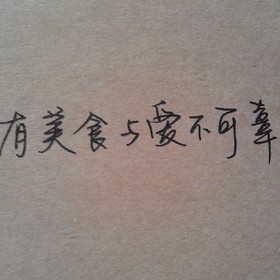 有美食与爱不可辜